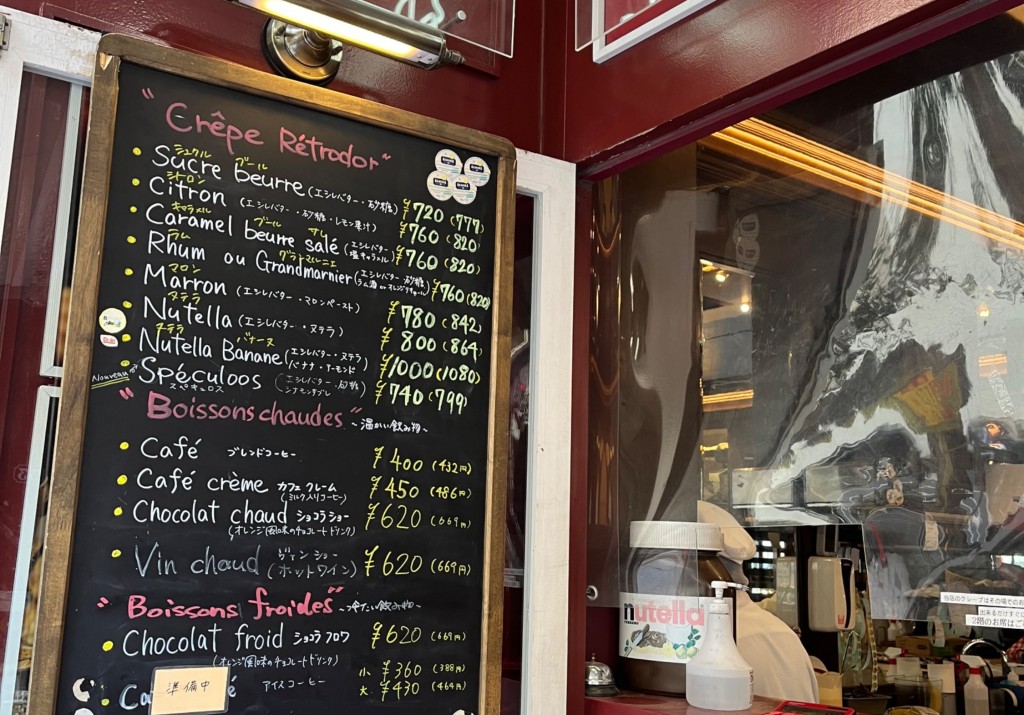 "Crêpe Rétrodor"
シュクル ブール
Sucre beurre (エシレバター・砂糖) ¥720 (777)
シトロン
Citron (エシレバター・砂糖・レモン果汁) ¥760 (820)
キャラメル ブール サレ
Caramel beurre salé (エシレバター・塩キャラメル) ¥760 (820)
ラム グランマルニエ
Rhum ou Grandmarnier (エシレバター・砂糖 ラム酒 or オレンジリキュール) ¥760 (820)
マロン
Marron (エシレバター・マロンペースト) ¥780 (842)
ヌテラ
Nutella (エシレバター・ヌテラ) ¥800 (864)
ヌテラ バナーヌ
Nutella Banane (エシレバター・ヌテラ バナナ・アーモンド) ¥1000 (1080)
Nouveau Spéculoos (エシレバター・砂糖 シナモンサブレ) ¥740 (799)
スペキュロス
"Boissons chaudes" ~温かい飲み物~
Café ブレンドコーヒー ¥400 (432円)
Café crème カフェクレーム (ミルク入りコーヒー) ¥450 (486円)
Chocolat chaud ショコラショー ¥620 (669円)
(オレンジ風味のチョコレートドリンク)
Vin chaud ヴァンショー (ホットワイン) ¥620 (669円)
"Boissons froides" ~冷たい飲み物~
Chocolat froid ショコラフロワ ¥620 (669円)
(オレンジ風味のチョコレートドリンク)
小 ¥360 (388円)
アイスコーヒー 大 ¥430 (464円)
準備中
nutella
当店のクレープはその場でのお
出来るだけすぐに
2階のお席はご